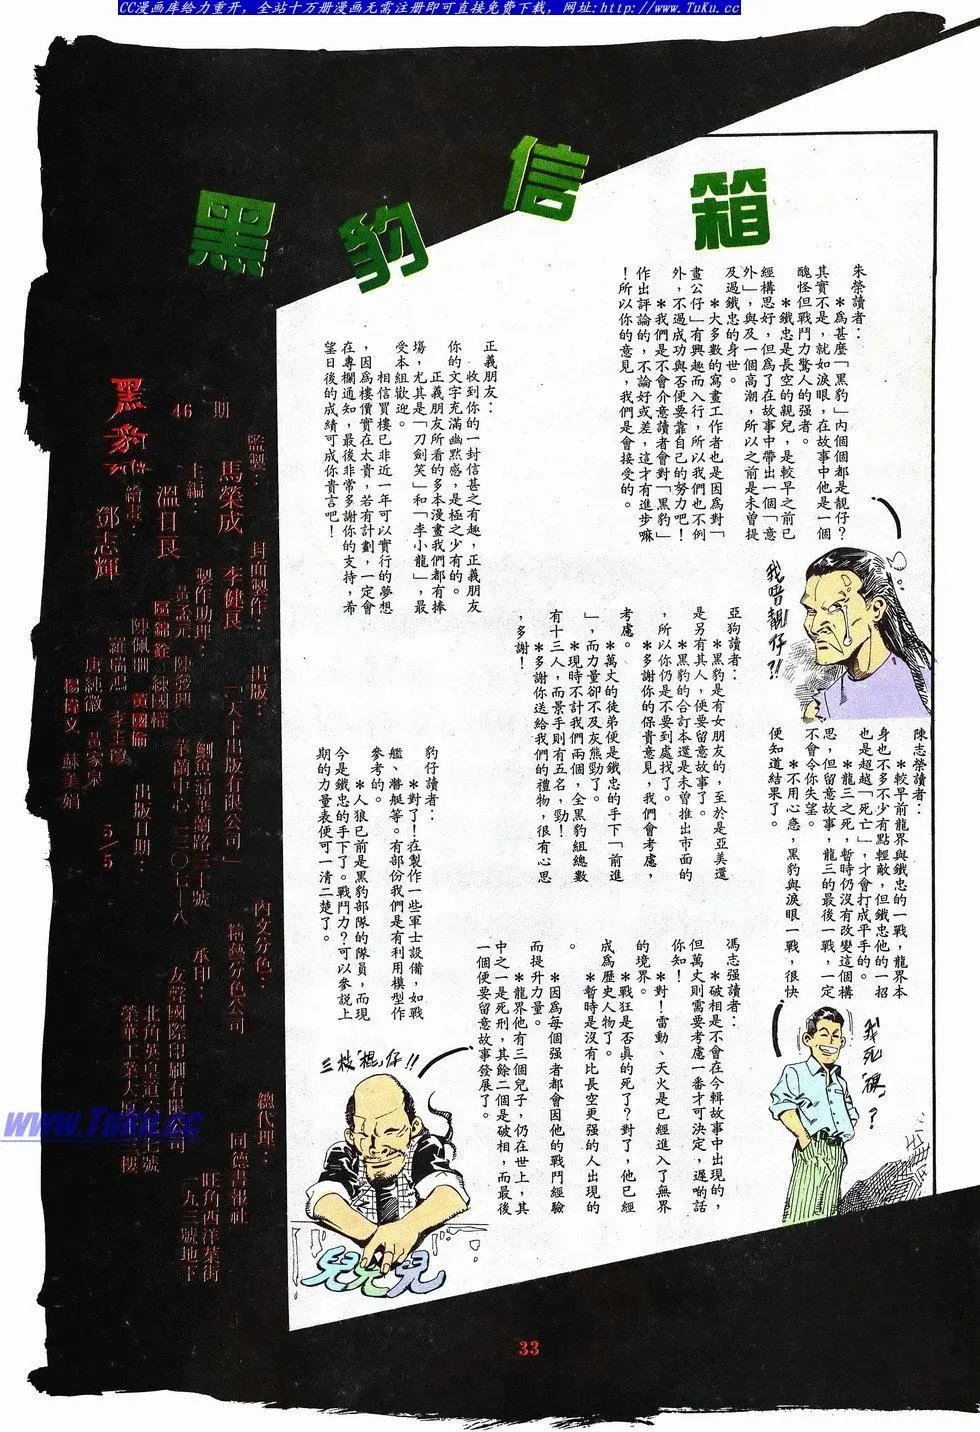 CC漫画库给力重开，全站十万册漫画无需注册即可直接免费下载，网址:http://www.TuKu.cc
黑豹信箱
朱榮讀者：
＊爲甚麼「黑豹」內個個都是靚仔？
其實不是，就如淚眼，在故事中他是一個
醜怪但戰鬥力驚人的强者。
＊鐵忠是長空的親兒，是較早之前已
經構思好，但爲了在故事中帶出一個「意
外」，與及一個高潮，所以之前是未曾提
及過鐵忠的身世。
＊大多數的寫畫工作者也是因爲對「
畫公仔」有興趣而入行，所以我們也不例
外，不過成功與否便要靠自己的努力吧！
＊我們是不會介意讀者會對「黑豹」
作出評論的，不論好或差，這才有進步嘛
！所以你的意見，我們是會接受的。
正義朋友：
收到你的一封信甚之有趣，正義朋友
你的文字充滿幽默感，是極之少有的。
正義朋友所看的多本漫畫我們都有捧
場，尤其是「刀劍笑」和「李小龍」，最
受本組歡迎。
相信買樓已非近一年可以實行的夢想
，因爲樓價實在太貴，若有計劃，一定會
在專欄通知，最後非常多謝你的支持，希
望日後的成績可成你貴言吧！
我唔靚仔?!
亞狗讀者：
＊黑豹是有女朋友的，至於是亞美還
是另有其人，便要留意故事了。
＊黑豹的合訂本還是未曾推出市面的
，所以你仍是不要到處找了。
＊多謝你的保貴意見，我們會考慮，
考慮。
＊萬丈的徒弟便是鐵忠的手下「前進
」，而力量卻不及灰熊勁了。
＊現時不計我們兩個，全黑豹組總數
有十三人，而景手則有五名，勁！
＊多謝你送給我們的禮物，很有心思
，多謝！
陳志榮讀者：
＊較早前龍界與鐵忠的一戰，龍界本
身也不多不少有點輕敵，但鐵忠他的一招
也是超越「死亡」，才會打成平手的。
＊龍三之死，暫時仍沒有改變這個構
思，但留意故事，龍三的最後一戰，一定
不會令你失望。
＊不用心急，黑豹與淚眼一戰，很快
便知道結果了。
豹仔讀者：
＊對了！在製作一些軍士設備，如戰
艦、潛艇等。有部份我們是有利用模型作
參考的。
＊人狼已前是黑豹部隊的隊員，而現
今是鐵忠的手下了。戰鬥力？可以參說上
期的力量表便可一清二楚了。
馮志强讀者：
＊破相是不會在今輯故事中出現的，
但萬丈則需要考慮一番才可決定，遲啲話
你知！
＊對！雷動、天火是已經進入了無界
的境界。
＊戰狂是否眞的死了？對了，他已經
成爲歷史人物了。
＊暫時是沒有比長空更强的人出現的
。
＊因爲每個强者都會因他的戰鬥經驗
而提升力量。
＊龍界他有三個兒子，仍在世上，其
中之一是死刑，其餘二個是破相，而最後
一個便要留意故事發展了。
我死硬？
三枝「棍」仔!!
兒尢兒
黑豹列傳
46 期
監製：
馬榮成
主編：
溫日良
繪畫：
鄧志輝
封面製作：
李健良
製作助理：
黃孟元 陳發興
區錦銓 練國權
陳佩珊 黃國倫
羅瑞鴻 李玉霞
唐純徽 黃家泉
楊偉文 蘇美娟
出版：
「天下出版有限公司」
鰂魚涌華蘭路二十號
華蘭中心一三〇七—八
出版日期：
5／5
內文分色：
精藝分色公司
承印：
友聲國際印刷有限公司
總代理：
同德書報社
旺角西洋菜街
一九三號地下
www.Tuku.cc
33